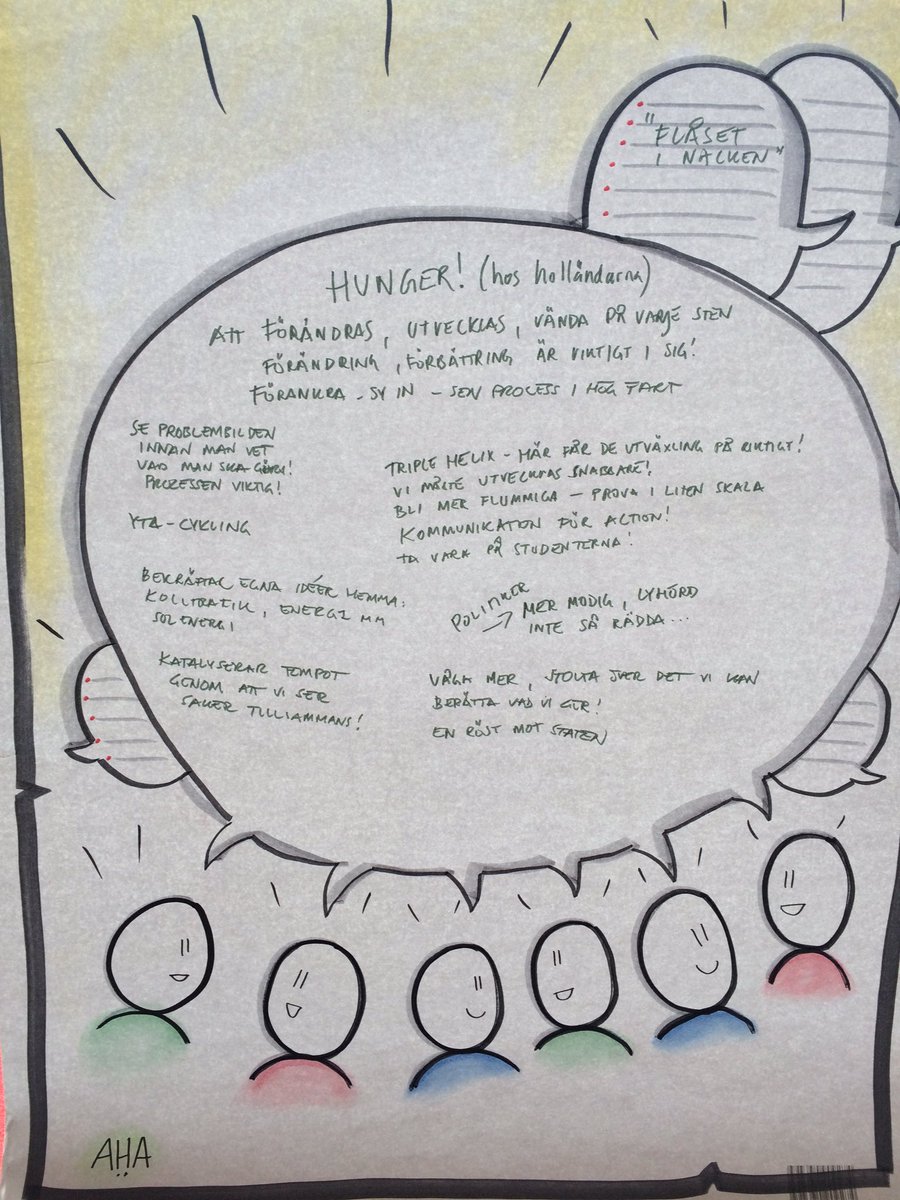 "FLÅSET
I NACKEN"
HUNGER! (hos holländarna)
ATT FÖRÄNDRAS, UTVECKLAS, VÄNDA PÅ VARJE STEN
FÖRÄNDRING, FÖRBÄTTRING ÄR VIKTIGT I SIG!
FÖRANKRA - SY IN - SEN PROCESS I HÖG FART
SE PROBLEMBILDEN
INNAN MAN VET
VAD MAN SKA GÖRA!
PROZESSEN VIKTIG!
YTA-CYKLING
BEKRÄFTAR EGNA IDÉER HEMMA:
KOLLTRAFIK, ENERGI MM
SOLENERGI
KATALYSERAR TEMPOT
GENOM ATT VI SER
SAKER TILLIAMMANS!
TRIPLE HELIX - HÄR FÅR DE UTVÄXLING PÅ RIKTIGT!
VI MÅSTE UTVECKLAS SNABBARE!
BLI MER FLUMMIGA - PROVA I LITEN SKALA
KOMMUNIKATION FÖR ACTION!
TA VARA PÅ STUDENTERNA!
POLITIKER
MER MODIG, LYHÖRD
INTE SÅ RÄDDA...
VÅGA MER, STOLTA ÖVER DET VI KAN
BERÄTTA VAD VI GÖR!
EN RÖST MOT STATEN
AHA